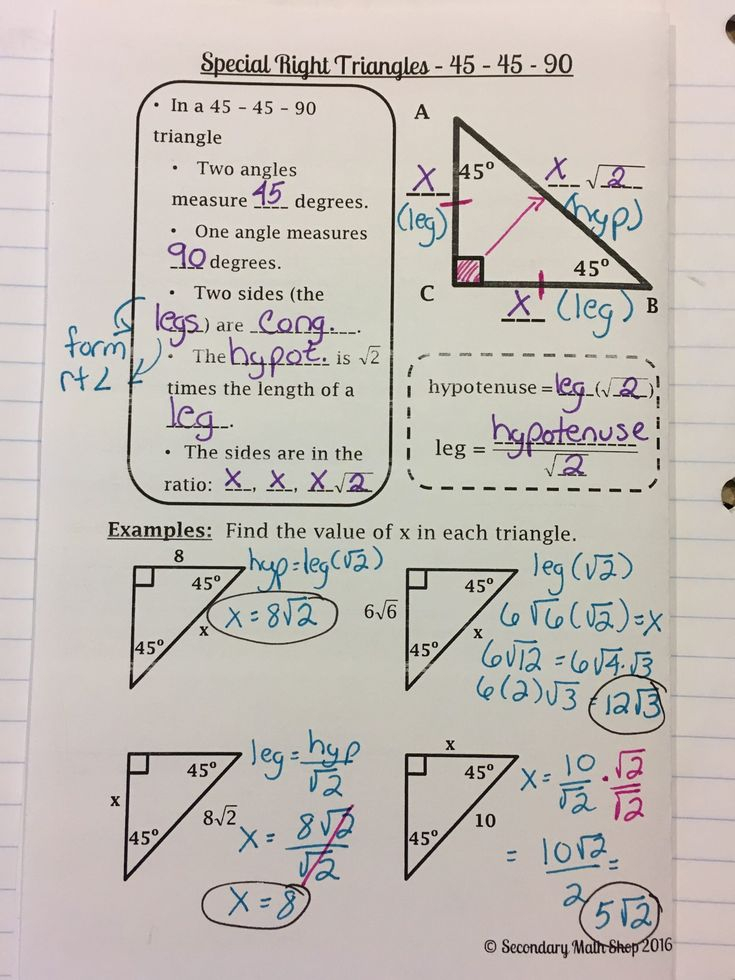 Special Right Triangles - 45 - 45 - 90
• In a 45 - 45 - 90
triangle
• Two angles
measure 45 degrees.
• One angle measures
90 degrees.
• Two sides (the
legs) are cong.
form
rt ∠
• The hypot. is √2
times the length of a
leg.
• The sides are in the
ratio: x, x, x√2
A
45°
x
(leg)
x √2
(hyp)
45°
C
x (leg)
B
hypotenuse = leg (√2)
leg = hypotenuse / √2
Examples: Find the value of x in each triangle.
8
45°
45°
x
hyp = leg(√2)
x = 8√2
6√6
45°
45°
x
leg(√2)
6√6(√2) = x
6√12 = 6√4·√3
6(2)√3 = 12√3
x
45°
45°
8√2
leg = hyp / √2
x = 8√2 / √2
x = 8
x
45°
45°
10
x = 10/√2 · √2/√2
= 10√2 / 2 =
5√2
© Secondary Math Shop 2016